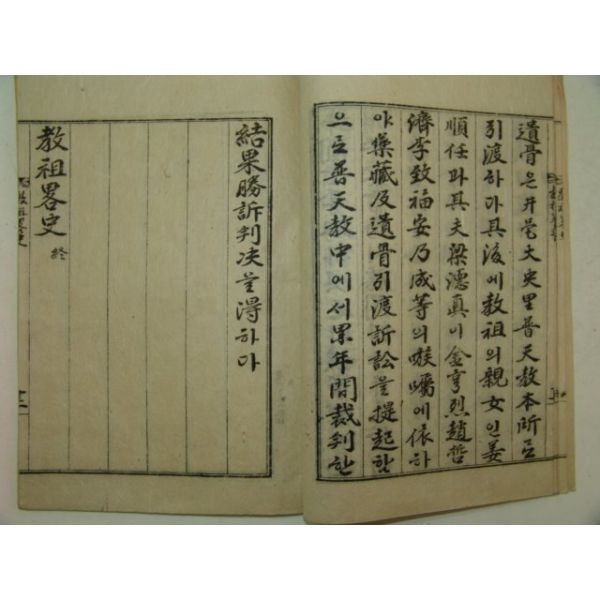 遺骨은井邑大興里普天教本所로
引渡하야其後에教祖의親女인姜
順任과其夫梁漙真이金亨烈趙哲
濟李致福安乃成等의嗾囑에依하
야藥藏及遺骨引渡訴訟을提起함
으로普天教中에서累年間裁判한
結果勝訴判决을得하야
教祖畧史 終
教祖畧史